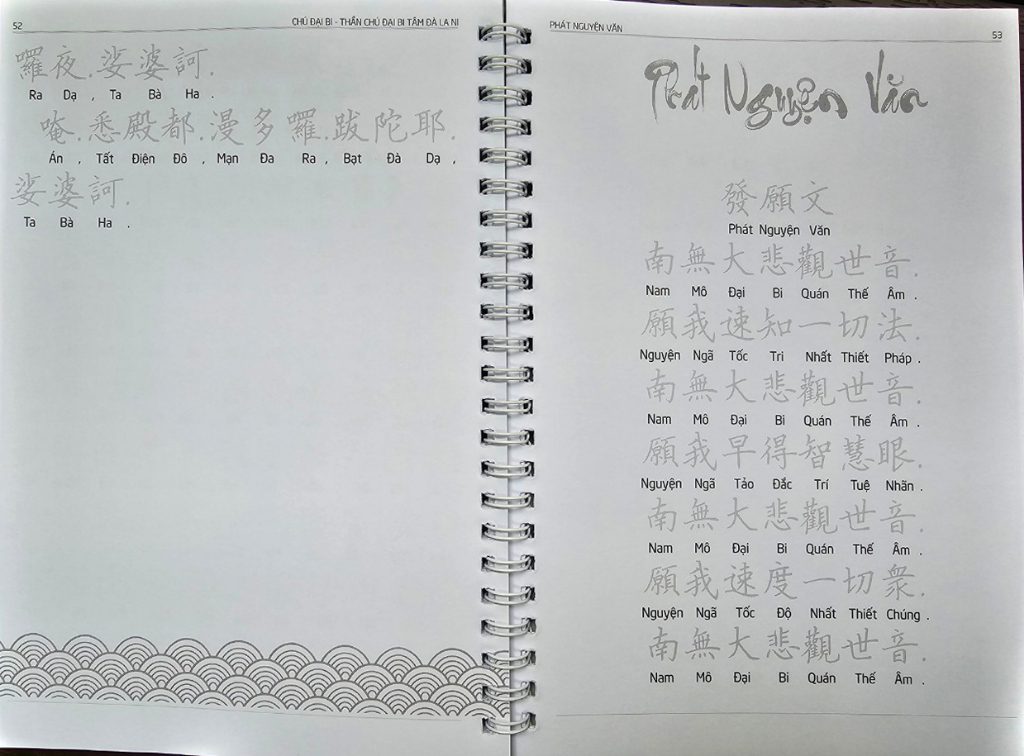 52
CHÚ ĐẠI BI - THẦN CHÚ ĐẠI BI TÂM ĐÀ LA NI
囉夜.娑婆訶.
Ra Dạ , Ta Bà Ha .
唵.悉殿都.漫多囉.跋陀耶.
Án , Tất Điện Đô , Mạn Đa Ra , Bạt Đà Dạ ,
娑婆訶.
Ta Bà Ha .
PHÁT NGUYỆN VĂN
53
Phát Nguyện Văn
發願文
Phát Nguyện Văn
南無大悲觀世音.
Nam Mô Đại Bi Quán Thế Âm .
願我速知一切法.
Nguyện Ngã Tốc Tri Nhất Thiết Pháp .
南無大悲觀世音.
Nam Mô Đại Bi Quán Thế Âm .
願我早得智慧眼.
Nguyện Ngã Tảo Đắc Trí Tuệ Nhãn .
南無大悲觀世音.
Nam Mô Đại Bi Quán Thế Âm .
願我速度一切衆.
Nguyện Ngã Tốc Độ Nhất Thiết Chúng .
南無大悲觀世音.
Nam Mô Đại Bi Quán Thế Âm .